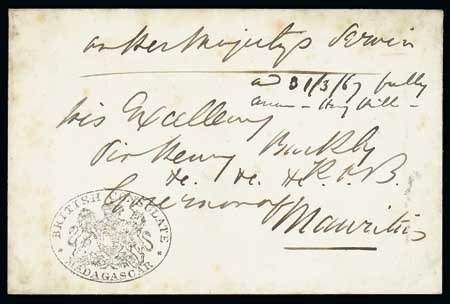 On Her Majesty's Service
31/3/67
His Excellency
Sir Henry Barkly
&c. &c. &c. K.C.B.
Governor of
Mauritius
BRITISH CONSULATE
MADAGASCAR